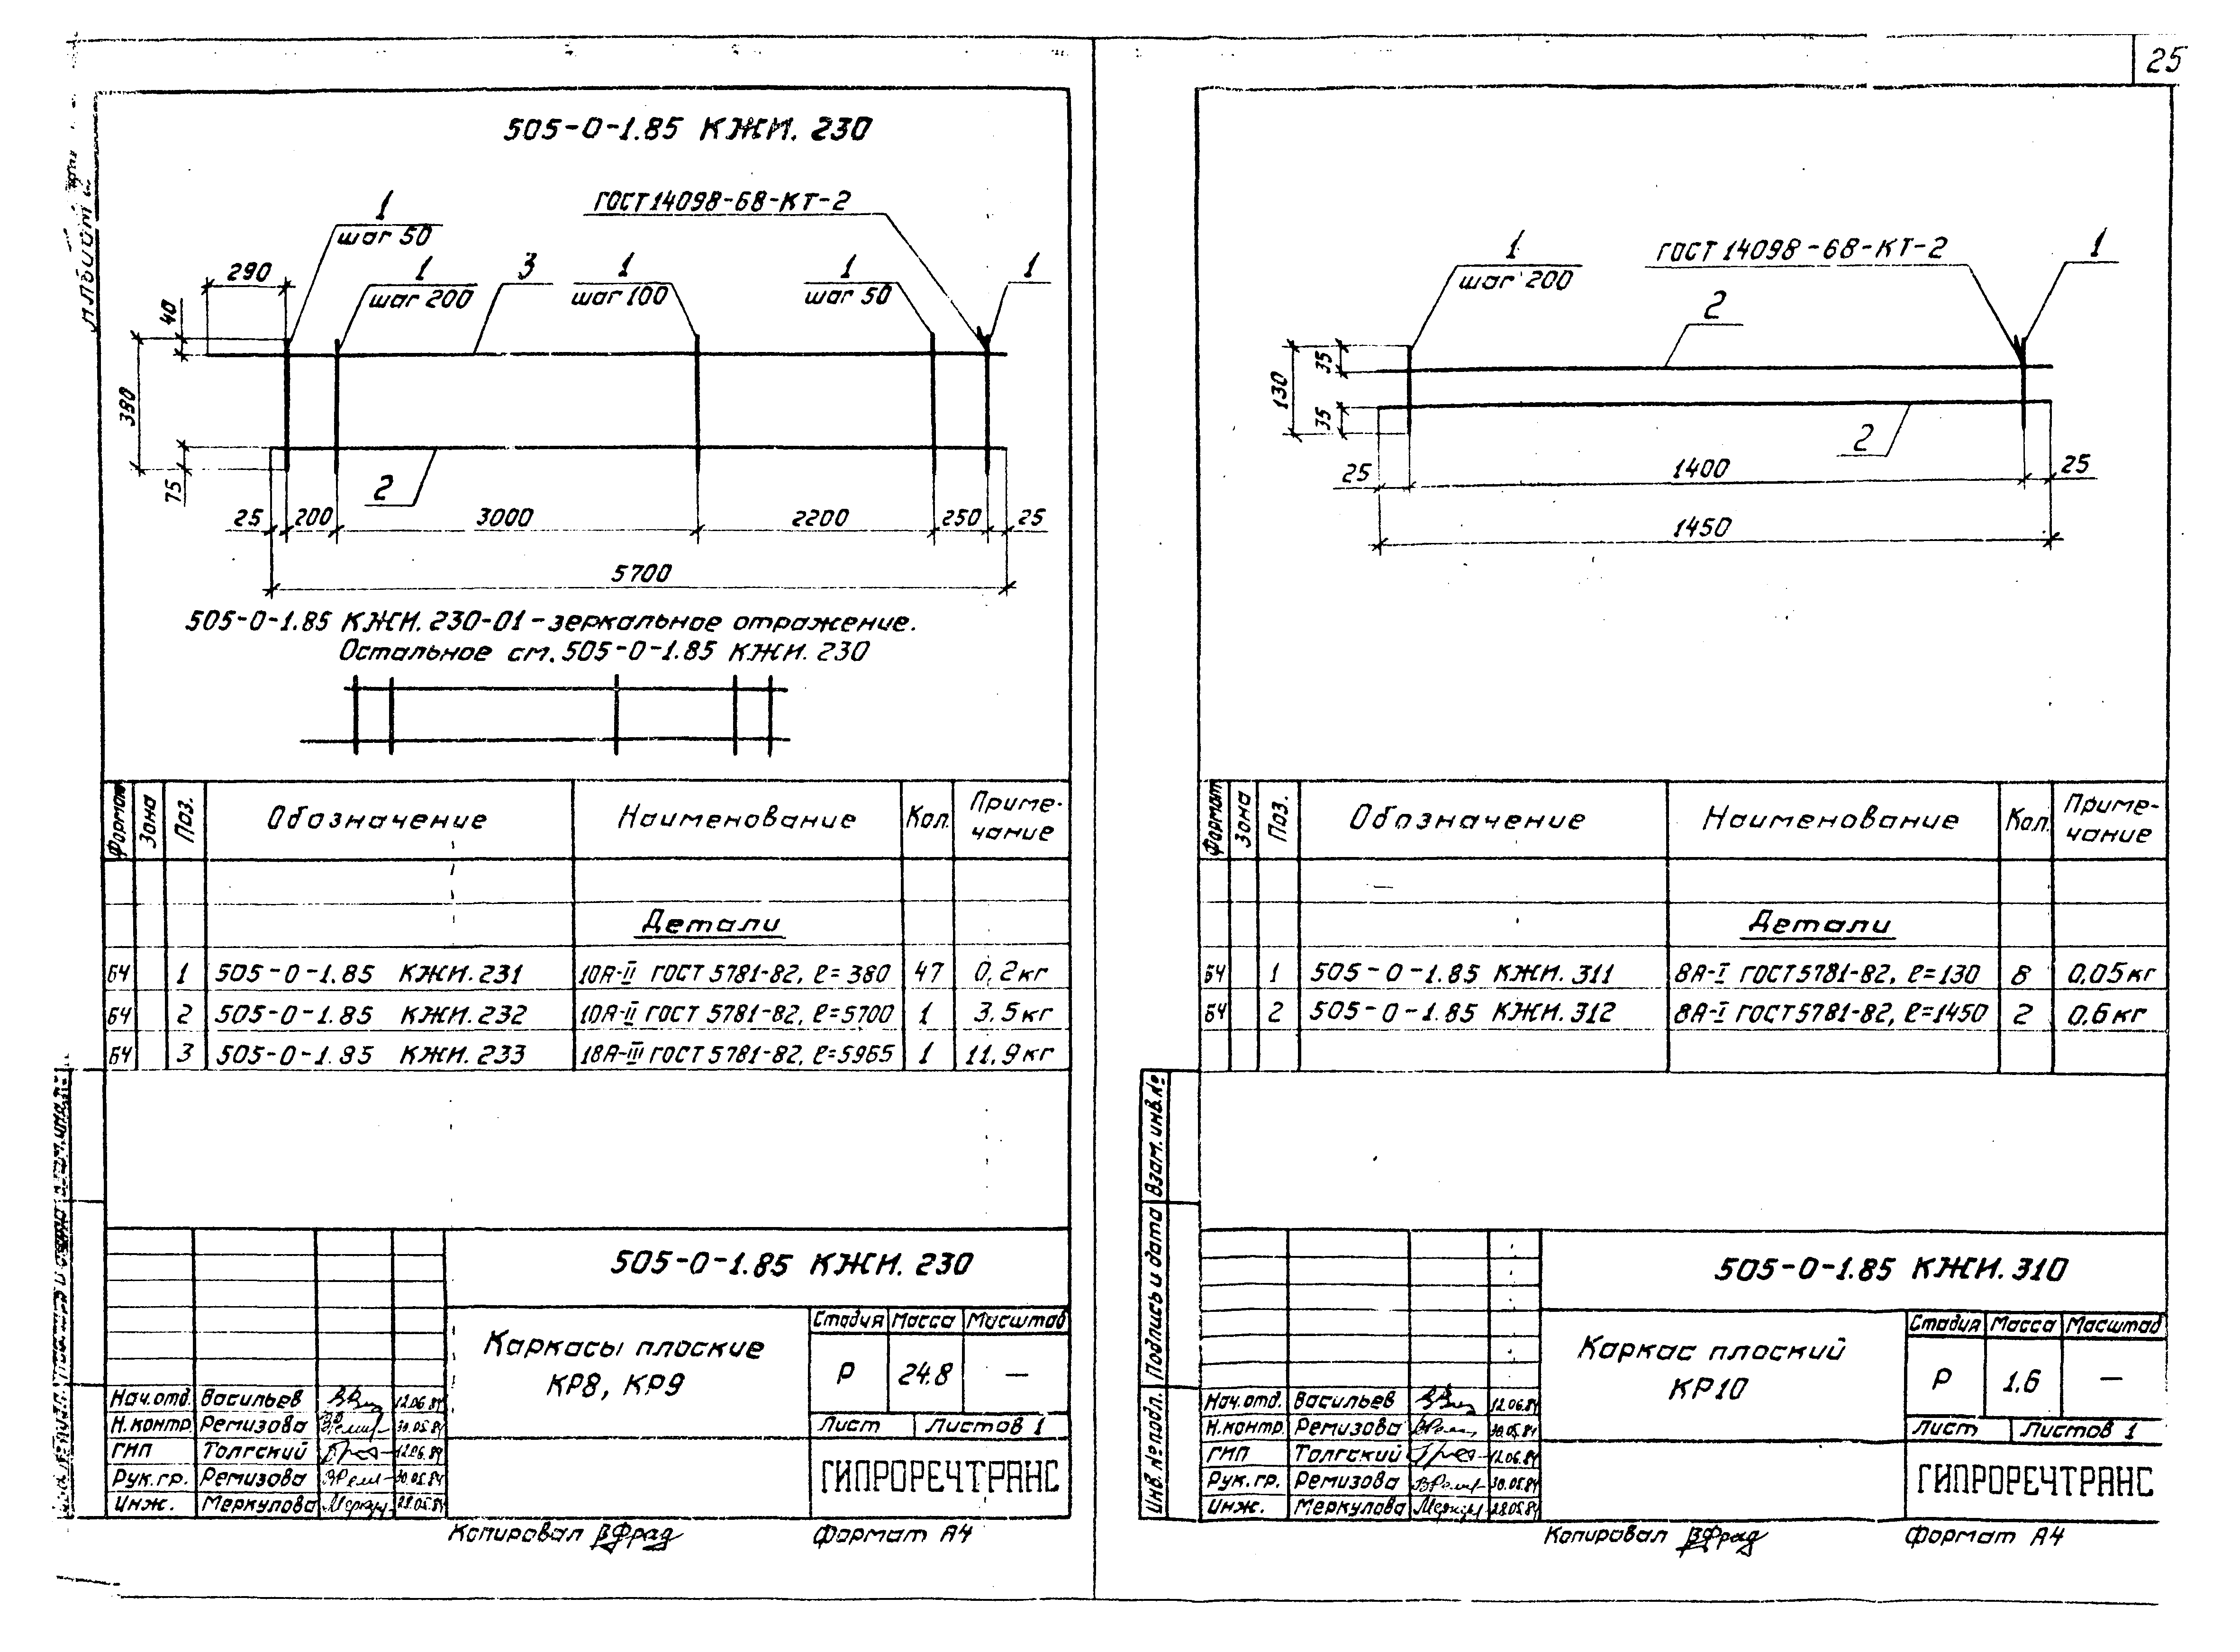 25
505-0-1.85 КЖИ.230
1
шаг 50
ГОСТ 14098-68-КТ-2
290
1
шаг 200
3
1
шаг 100
1
шаг 50
1
40
380
75
2
25 200 3000 2200 250 25
5700
505-0-1.85 КЖИ.230-01 - зеркальное отражение.
Остальное см. 505-0-1.85 КЖИ.230
Формат Зона Поз. Обозначение Наименование Кол. Приме-
чание
Детали
БЧ 1 505-0-1.85 КЖИ.231 10А-II ГОСТ 5781-82, ℓ=380 47 0,2кг
БЧ 2 505-0-1.85 КЖИ.232 10А-II ГОСТ 5781-82, ℓ=5700 1 3.5кг
БЧ 3 505-0-1.85 КЖИ.233 18А-III ГОСТ 5781-82, ℓ=5965 1 11.9кг
505-0-1.85 КЖИ.230
Каркасы плоские
КР8, КР9
Стадия Масса Масштаб
Р 24.8 —
Лист Листов 1
Нач.отд. Васильев 12.06.84
Н.контр. Ремизова 30.05.84
ГИП Толгский 12.06.84
Рук.гр. Ремизова 30.05.84
Инж. Меркулова 28.05.84
ГИПРОРЕЧТРАНС
Копировал Формат А4
1
шаг 200
ГОСТ 14098-68-КТ-2
1
2
35
130
35
2
25 1400 25
1450
Формат Зона Поз. Обозначение Наименование Кол. Приме-
чание
Детали
БЧ 1 505-0-1.85 КЖИ.311 8А-I ГОСТ 5781-82, ℓ=130 8 0,05кг
БЧ 2 505-0-1.85 КЖИ.312 8А-I ГОСТ 5781-82, ℓ=1450 2 0,6кг
Взам. инв. №
Подпись и дата
Инв. № подл.
505-0-1.85 КЖИ.310
Каркас плоский
КР10
Стадия Масса Масштаб
Р 1,6 —
Лист Листов 1
Нач.отд. Васильев 12.06.84
Н.контр. Ремизова 30.05.84
ГИП Толгский 12.06.84
Рук.гр. Ремизова 30.05.84
Инж. Меркулова 28.05.84
ГИПРОРЕЧТРАНС
Копировал Формат А4